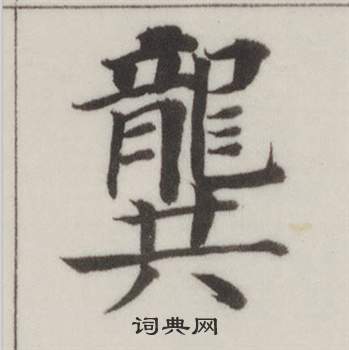 龔
词典网